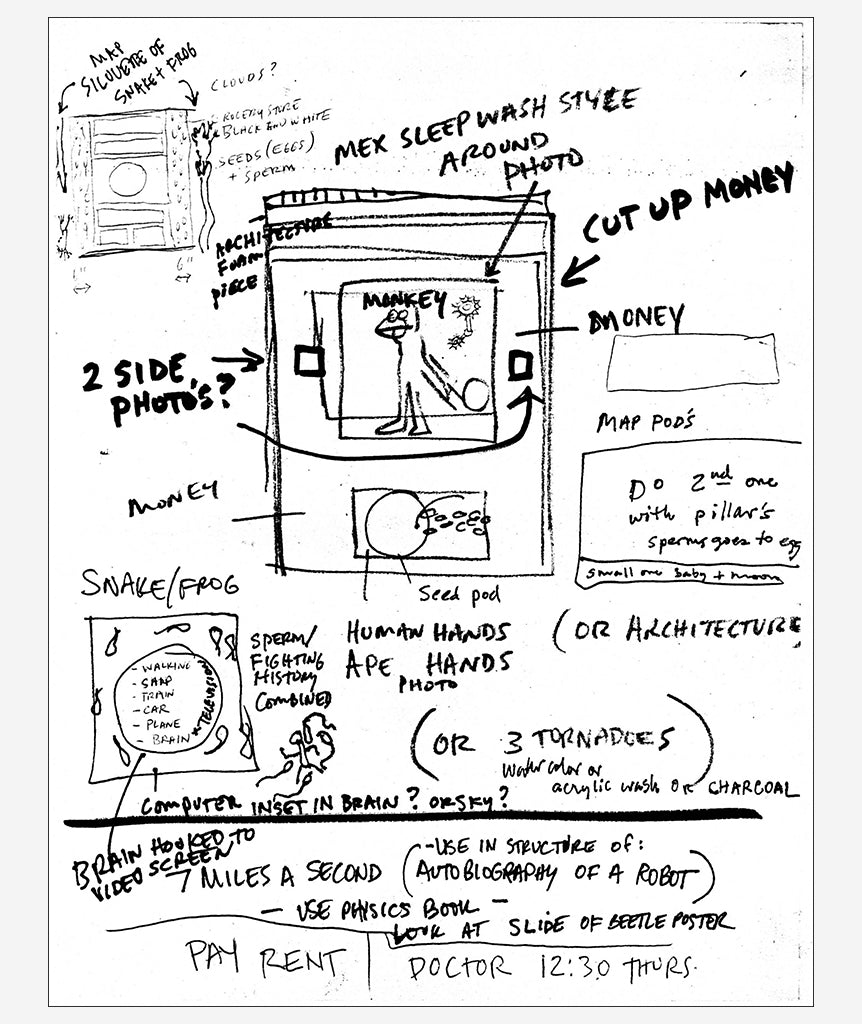 MAP
SILOUETTE OF
SNAKE + FROG
CLOUDS?
GROCERY STORE
BLACK AND WHITE
SEEDS (EGGS)
+ SPERM
6"
6"
MEX SLEEP WASH STYLE
AROUND
PHOTO
CUT UP MONEY
ARCHITECTURE
FOAM
PIECE
MONKEY
MONEY
2 SIDE
PHOTO'S?
MAP POD'S
DO 2nd one
with pillar's
sperms goes to egg
small one baby + moon
MONEY
Seed pod
SNAKE/FROG
- WALKING
- SHIP
- TRAIN
- CAR
- PLANE
- BRAIN
TELEVISION
SPERM/
FIGHTING
HISTORY
COMBINED
HUMAN HANDS
APE HANDS
PHOTO
(OR ARCHITECTURE
(OR 3 TORNADOES)
Watercolor or
acrylic wash or CHARCOAL
COMPUTER INSET IN BRAIN? OR SKY?
BRAIN HOOKED TO
VIDEO SCREEN
7 MILES A SECOND
(-USE IN STRUCTURE OF:
AUTOBIOGRAPHY OF A ROBOT)
— USE PHYSICS BOOK —
LOOK AT SLIDE OF BEETLE POSTER
PAY RENT
DOCTOR 12:30 THURS.